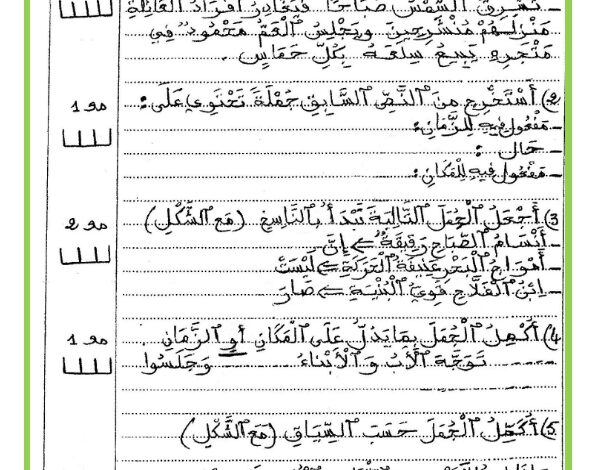 ـ تُشْرِقُ الشَّمْسُ صَبَاحًا فَيُغَادِرُ أَفْرَادُ الْعَائِلَةِ
مَنْزِلَهُمْ مُنْشَرِحِينَ وَيَجْلِسُ الْعَمُّ مَحْمُودٌ فِي
مَتْجَرِهِ يَبِيعُ سِلَعَهُ بِكُلِّ حَمَاسٍ.
2) أَسْتَخْرِجُ مِنَ النَّصِّ السَّابِقِ جُمْلَةً تَحْتَوِي عَلَى: مع 1
ـ مَفْعُول فِيهِ لِلزَّمَانِ:
ـ حَال :
ـ مَفْعُول فِيهِ لِلْمَكَانِ:
3) أَجْعَلُ الْجُمَلَ التَّالِيَةَ تَبْدَأُ بِالنَّاسِخِ (مَعَ الشَّكْلِ) مع 2
ـ أَنْسَامُ الصَّبَاحِ رَقِيقَةٌ => إِنَّ
ـ أَمْوَاجُ الْبَحْرِ عَنِيفَةُ الْحَرَكَةِ => لَيْسَتْ
ـ اِبْنُ الْفَلَّاحِ قَوِيُّ الْبُنْيَةِ => صَارَ
4) أُكْمِلُ الْجُمَلَ بِمَا يَدُلُّ عَلَى الْمَكَانِ أَوِ الزَّمَانِ . مع 1
ـ تَوَجَّهَ الْأَبُ وَالْأَبْنَاءُ ........ وَجَلَسُوا
5) أُكْمِلُ الْجُمَلَ حَسَبَ السِّيَاقِ (مَعَ الشَّكْلِ)